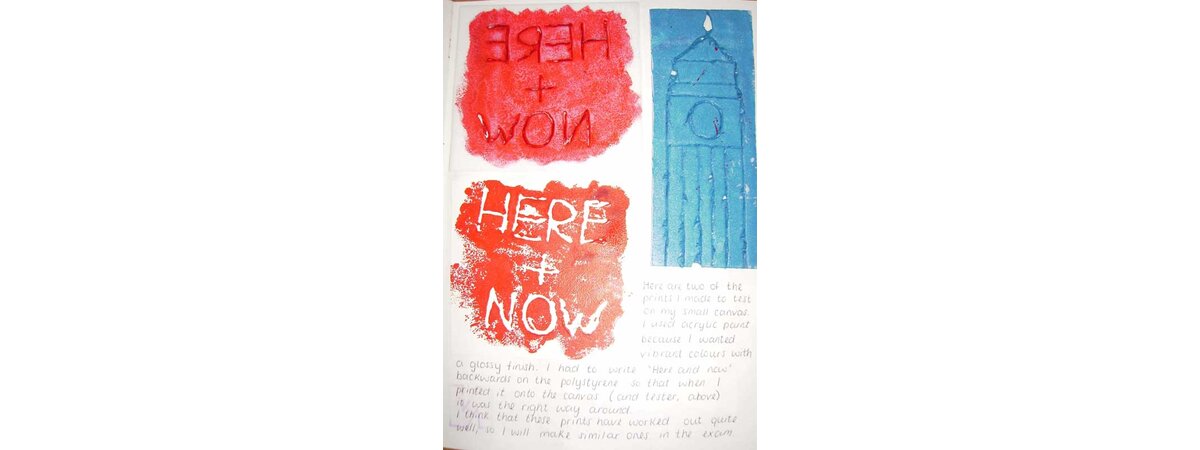 HERE
+
NOW
HERE
+
NOW
Here are two of the
prints I made to test
on my small canvas.
I used acrylic paint
because I wanted
vibrant colours with
a glossy finish. I had to write 'Here and now'
backwards on the polystyrene so that when I
printed it onto the canvas (and tester, above)
it was the right way around.
I think that these prints have worked out quite
well, so I will make similar ones in the exam